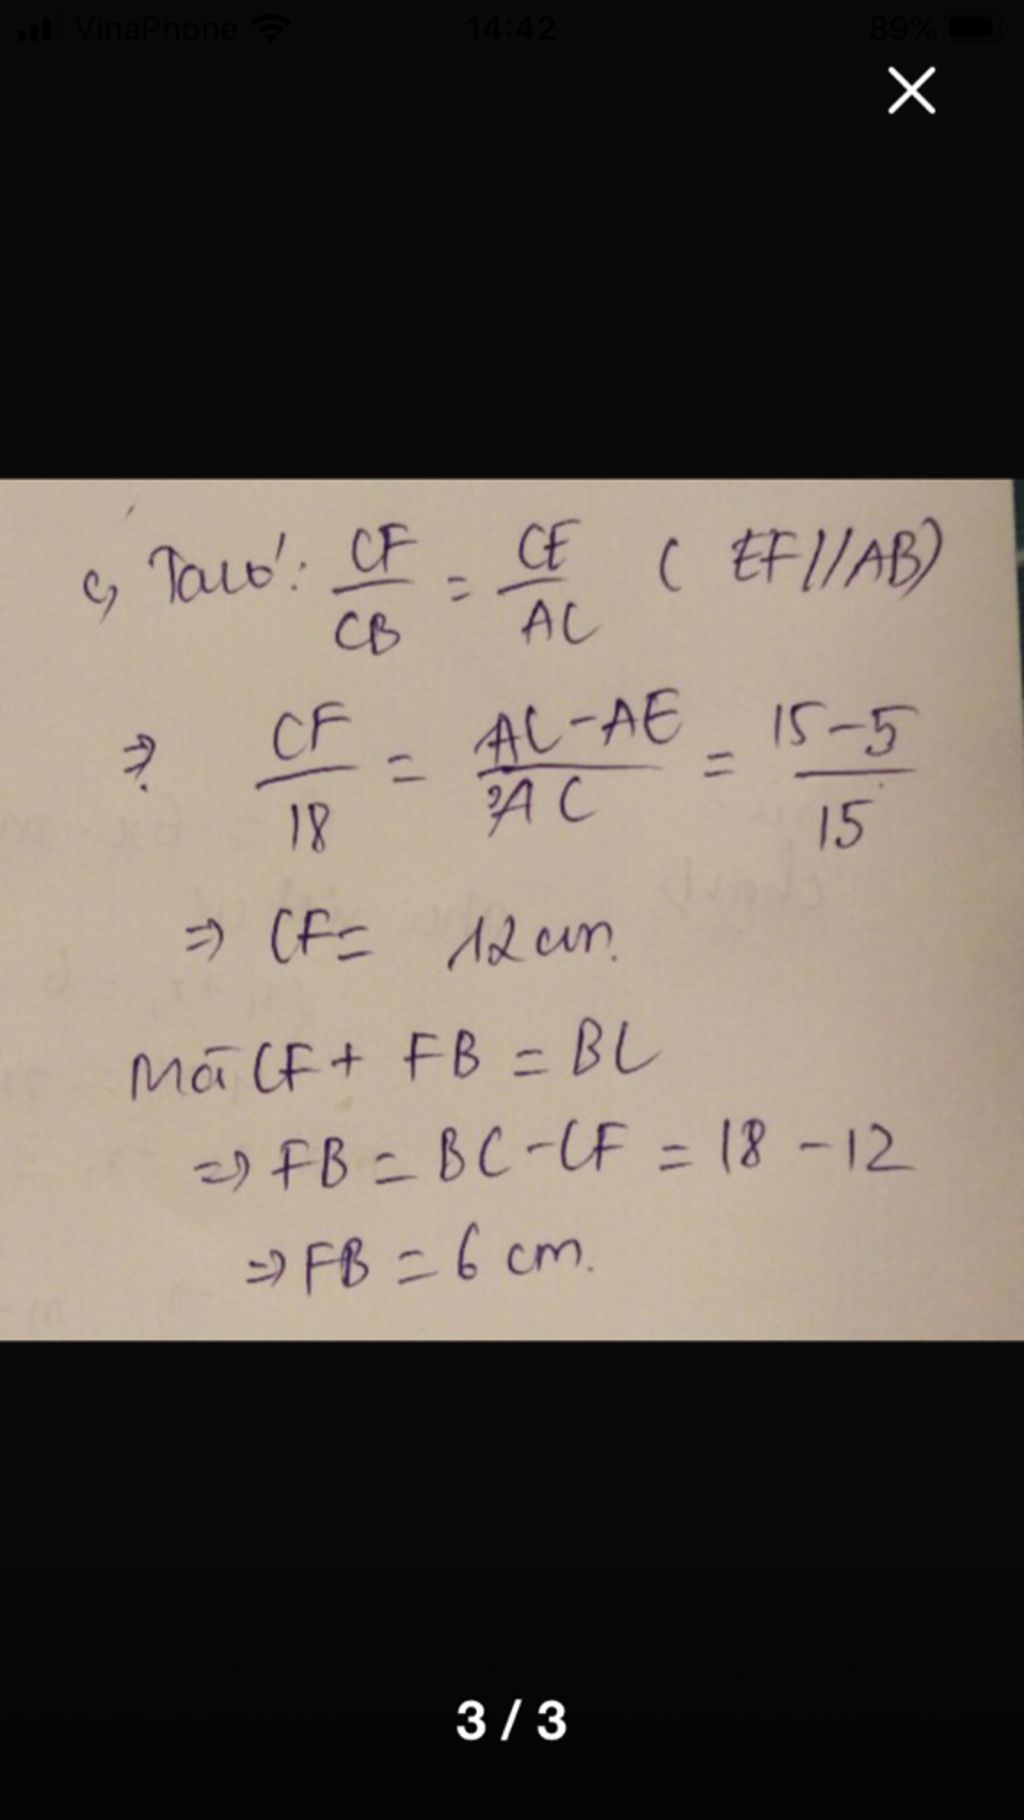 VinaPhone 14:42 89%
c, Ta có: CF/CB = CE/AC ( EF//AB)
=> CF/18 = AC-AE/AC = 15-5/15
=> CF = 12 cm.
Mà CF + FB = BC
=> FB = BC - CF = 18 - 12
=> FB = 6 cm.
3 / 3